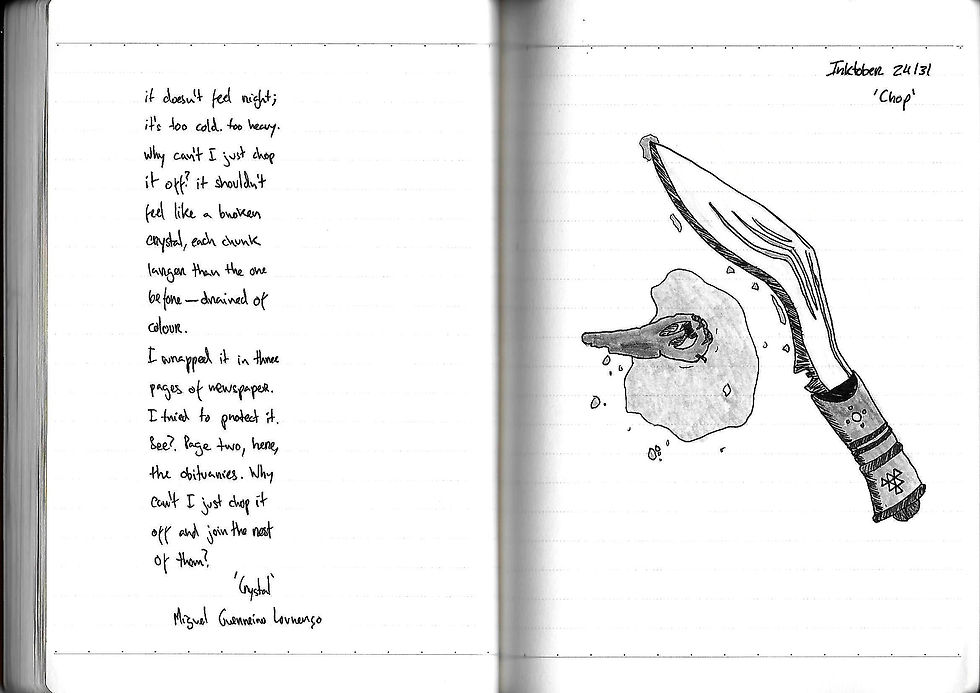 it doesn't feel right;
it's too cold. too heavy.
Why can't I just chop
it off? it shouldn't
feel like a broken
crystal, each chunk
larger than the one
before — drained of
colour.
I wrapped it in three
pages of newspaper.
I tried to protect it.
See? Page two, here,
the obituaries. Why
can't I just chop it
off and join the rest
of them?
'Crystal'
Miguel Guerreiro Lourenço
Inktober 24/31
'Chop'